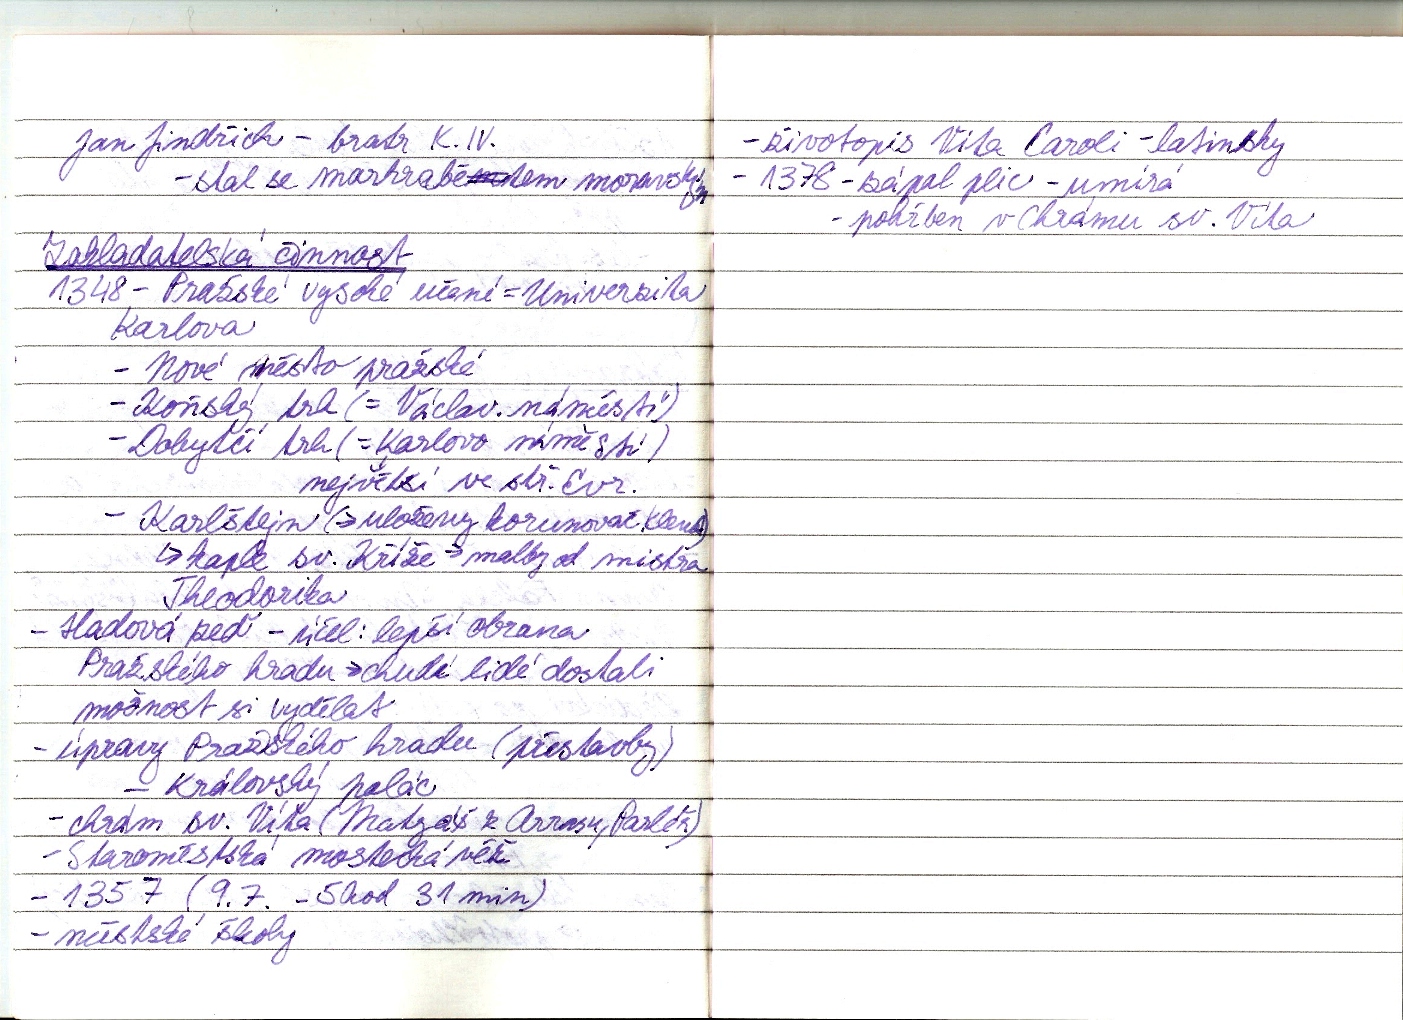 Jan Jindřich - bratr K. IV.
- stal se markrabětem moravským
Zakladatelská činnost
1348 - Pražské vysoké učení = Universita
Karlova
- Nové město pražské
- Koňský trh (= Václav. náměstí)
- Dobytčí trh (= Karlovo náměstí)
největší ve stř. Evr.
- Karlštejn (→ uloženy korunovač. klenoty)
↳ kaple sv. Kříže → malby od mistra
Theodorika
- Hladová zeď - účel: lepší obrana
Pražského hradu → chudí lidé dostali
možnost si vydělat
- úpravy Pražského hradu (přestavby)
- Královský palác
- chrám sv. Víta (Matyáš z Arrasu, Parléř)
- Staroměstská mostecká věž
- 1357 (9.7. - 5 hod 31 min)
- městské školy
- životopis Vita Caroli - latinsky
- 1378 - zápal plic - umírá
- pohřben v Chrámu sv. Víta